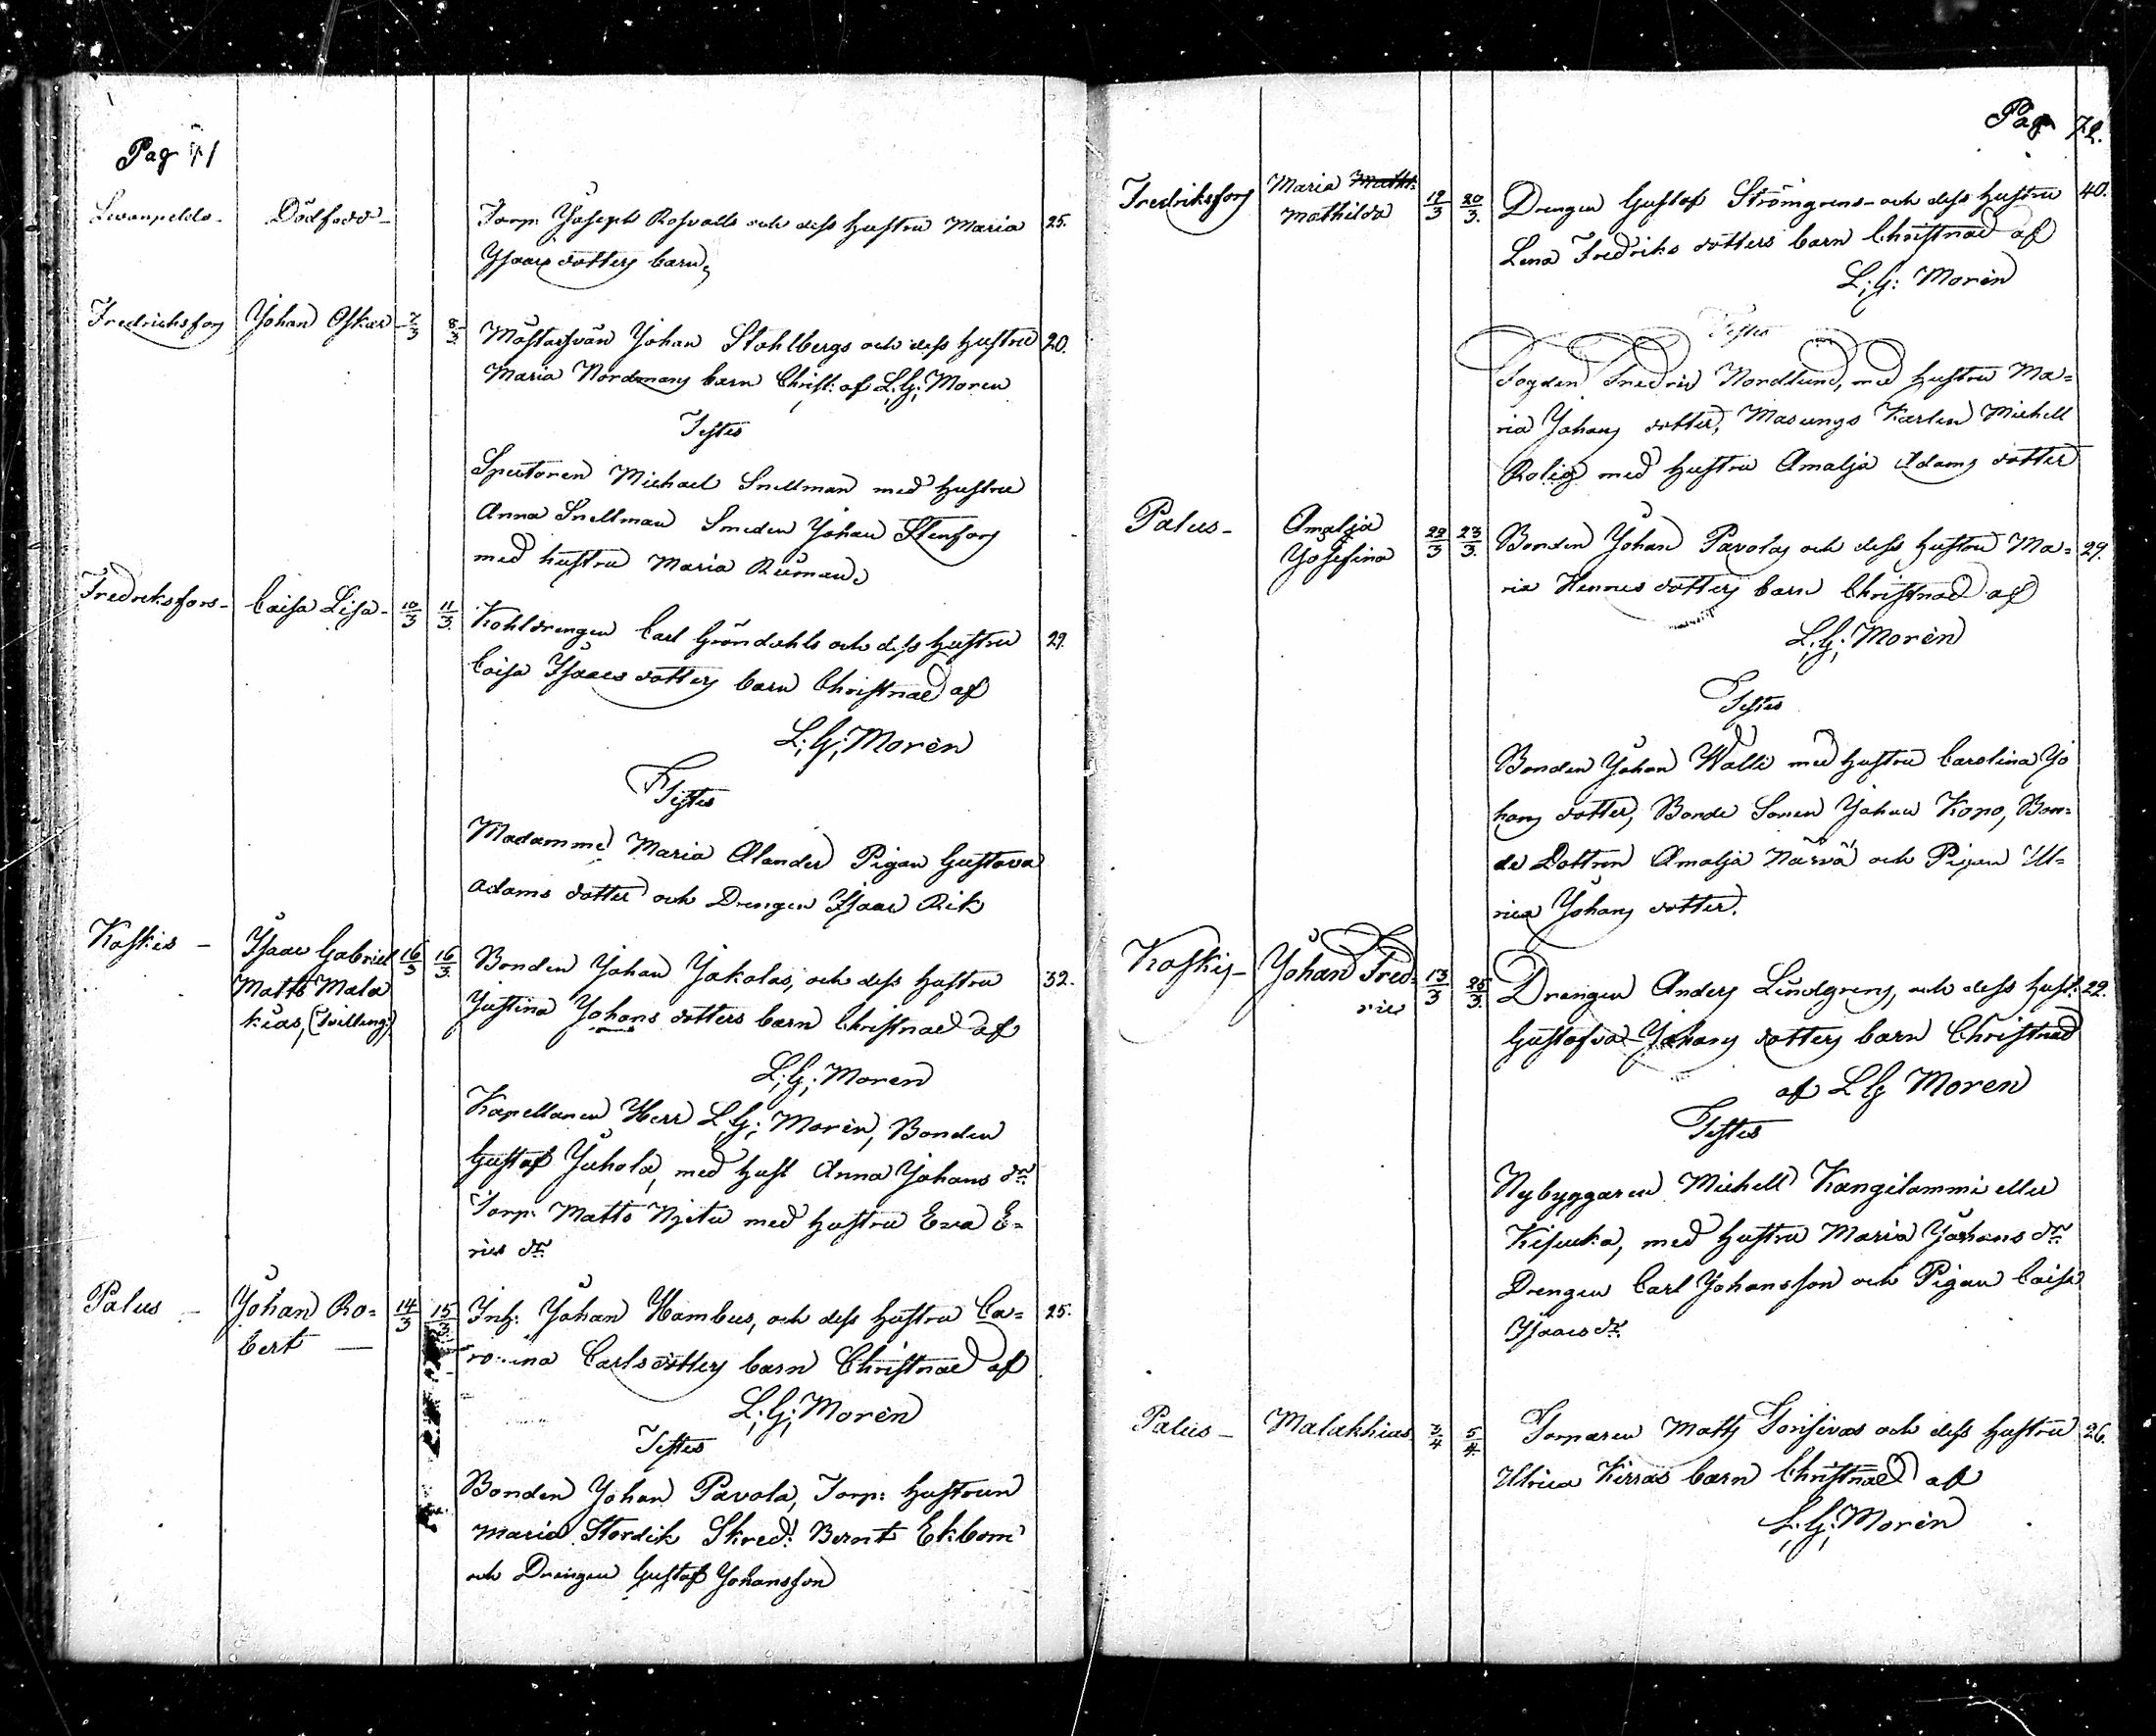 Pag 71
Levanpelds- Dödfödd- Torp: Joseph Rosvalls och dess hustru Maria 25.
Isaacs dotters barn,
Fredrichsfors Johan Oskar 7/3 8/3 Mästarsvän Johan Stohlbergs och dess hustru 20.
Maria Nordmans barn Christ: af L:G: Moren
Testes
Spectoren Michael Snellman med hustru
Anna Snellman Smeden Johan Stenfors
med hustru Maria
Fredriksfors- Caisa Lisa- 10/3 11/3 Kohldrengen Carl Gröndahls och dess hustru 29.
Caisa Isaacs dotters barn Christnad af
L:G: Morén
Testes
Madamme Maria Alander Pigan Gustava
Adams dotter och Drengen Isaac Rik
Koskis - Isaac Gabriel 16/3 16/3 Bonden Johan Jakolas, och dess hustru 32.
Matts Mala Justina Johans dotters barn Christnad af
kias, (Tvilling:)
L:G: Moren
Kapellanen Herr L:G: Morén, Bonden
Gustaf Juhola, med hust Anna Johans dr
Torp: Matts Njitu med hustru Eva E=
rics dr
Palus - Johan Ro= 14/3 15/3 Inh: Johan Hambus, och dess hustru Ca= 25.
bert — rolina Carlsdotters barn Christnad af
L:G: Morén
Testes
Bonden Johan Pavola, Torp: hustrun
Maria Stordik Skred: Bernt Ekbom
och Drengen Gustaf Johansson
Pag 72.
Fredriksfors Maria Math: 19/3 20/3. Drengen Gustaf Strömgrens- och dess hustru 40.
Mathilda Lena Fredriks dotters barn Christnad af
L:G: Morén
Testes
Fogden Fredric Nordlund, med hustru Ma=
ria Johans dotter, Masungs Karlen Michell
Rolig med hustru Amalja Adams dotter
Palus- Amalja 22/3 23/3. Bonden Johan Pavolas och dess hustru Ma= 29.
Josefina ria Henrics dotters barn Christnad af
L:G: Morén
Testes
Bonden Johan Walli med hustru Carolina Jo
hans dotter, Bonde Sonen Johan Kopo, Bon=
de Dottren Amalja Närvä och Pigan Ul=
rica Johans dotter.
Koskis- Johan Fred= 13/3 25/3. Drengen Anders Lindgrens, och dess hust: 29.
ric Gustafva Johans dotters barn Christnad
af LG Moren
Testes
Nybyggaren Michell Kangilammi eller
Kisuka, med hustru Maria Johans dr
Drengen Carl Johansson och Pigan Caisa
Isaacs dr.
Palus- Malakhias 3/4 5/4. Torparen Matts Torisivas och dess hustru 26.
Ulrica Kirras barn Christnad af
L:G: Morén